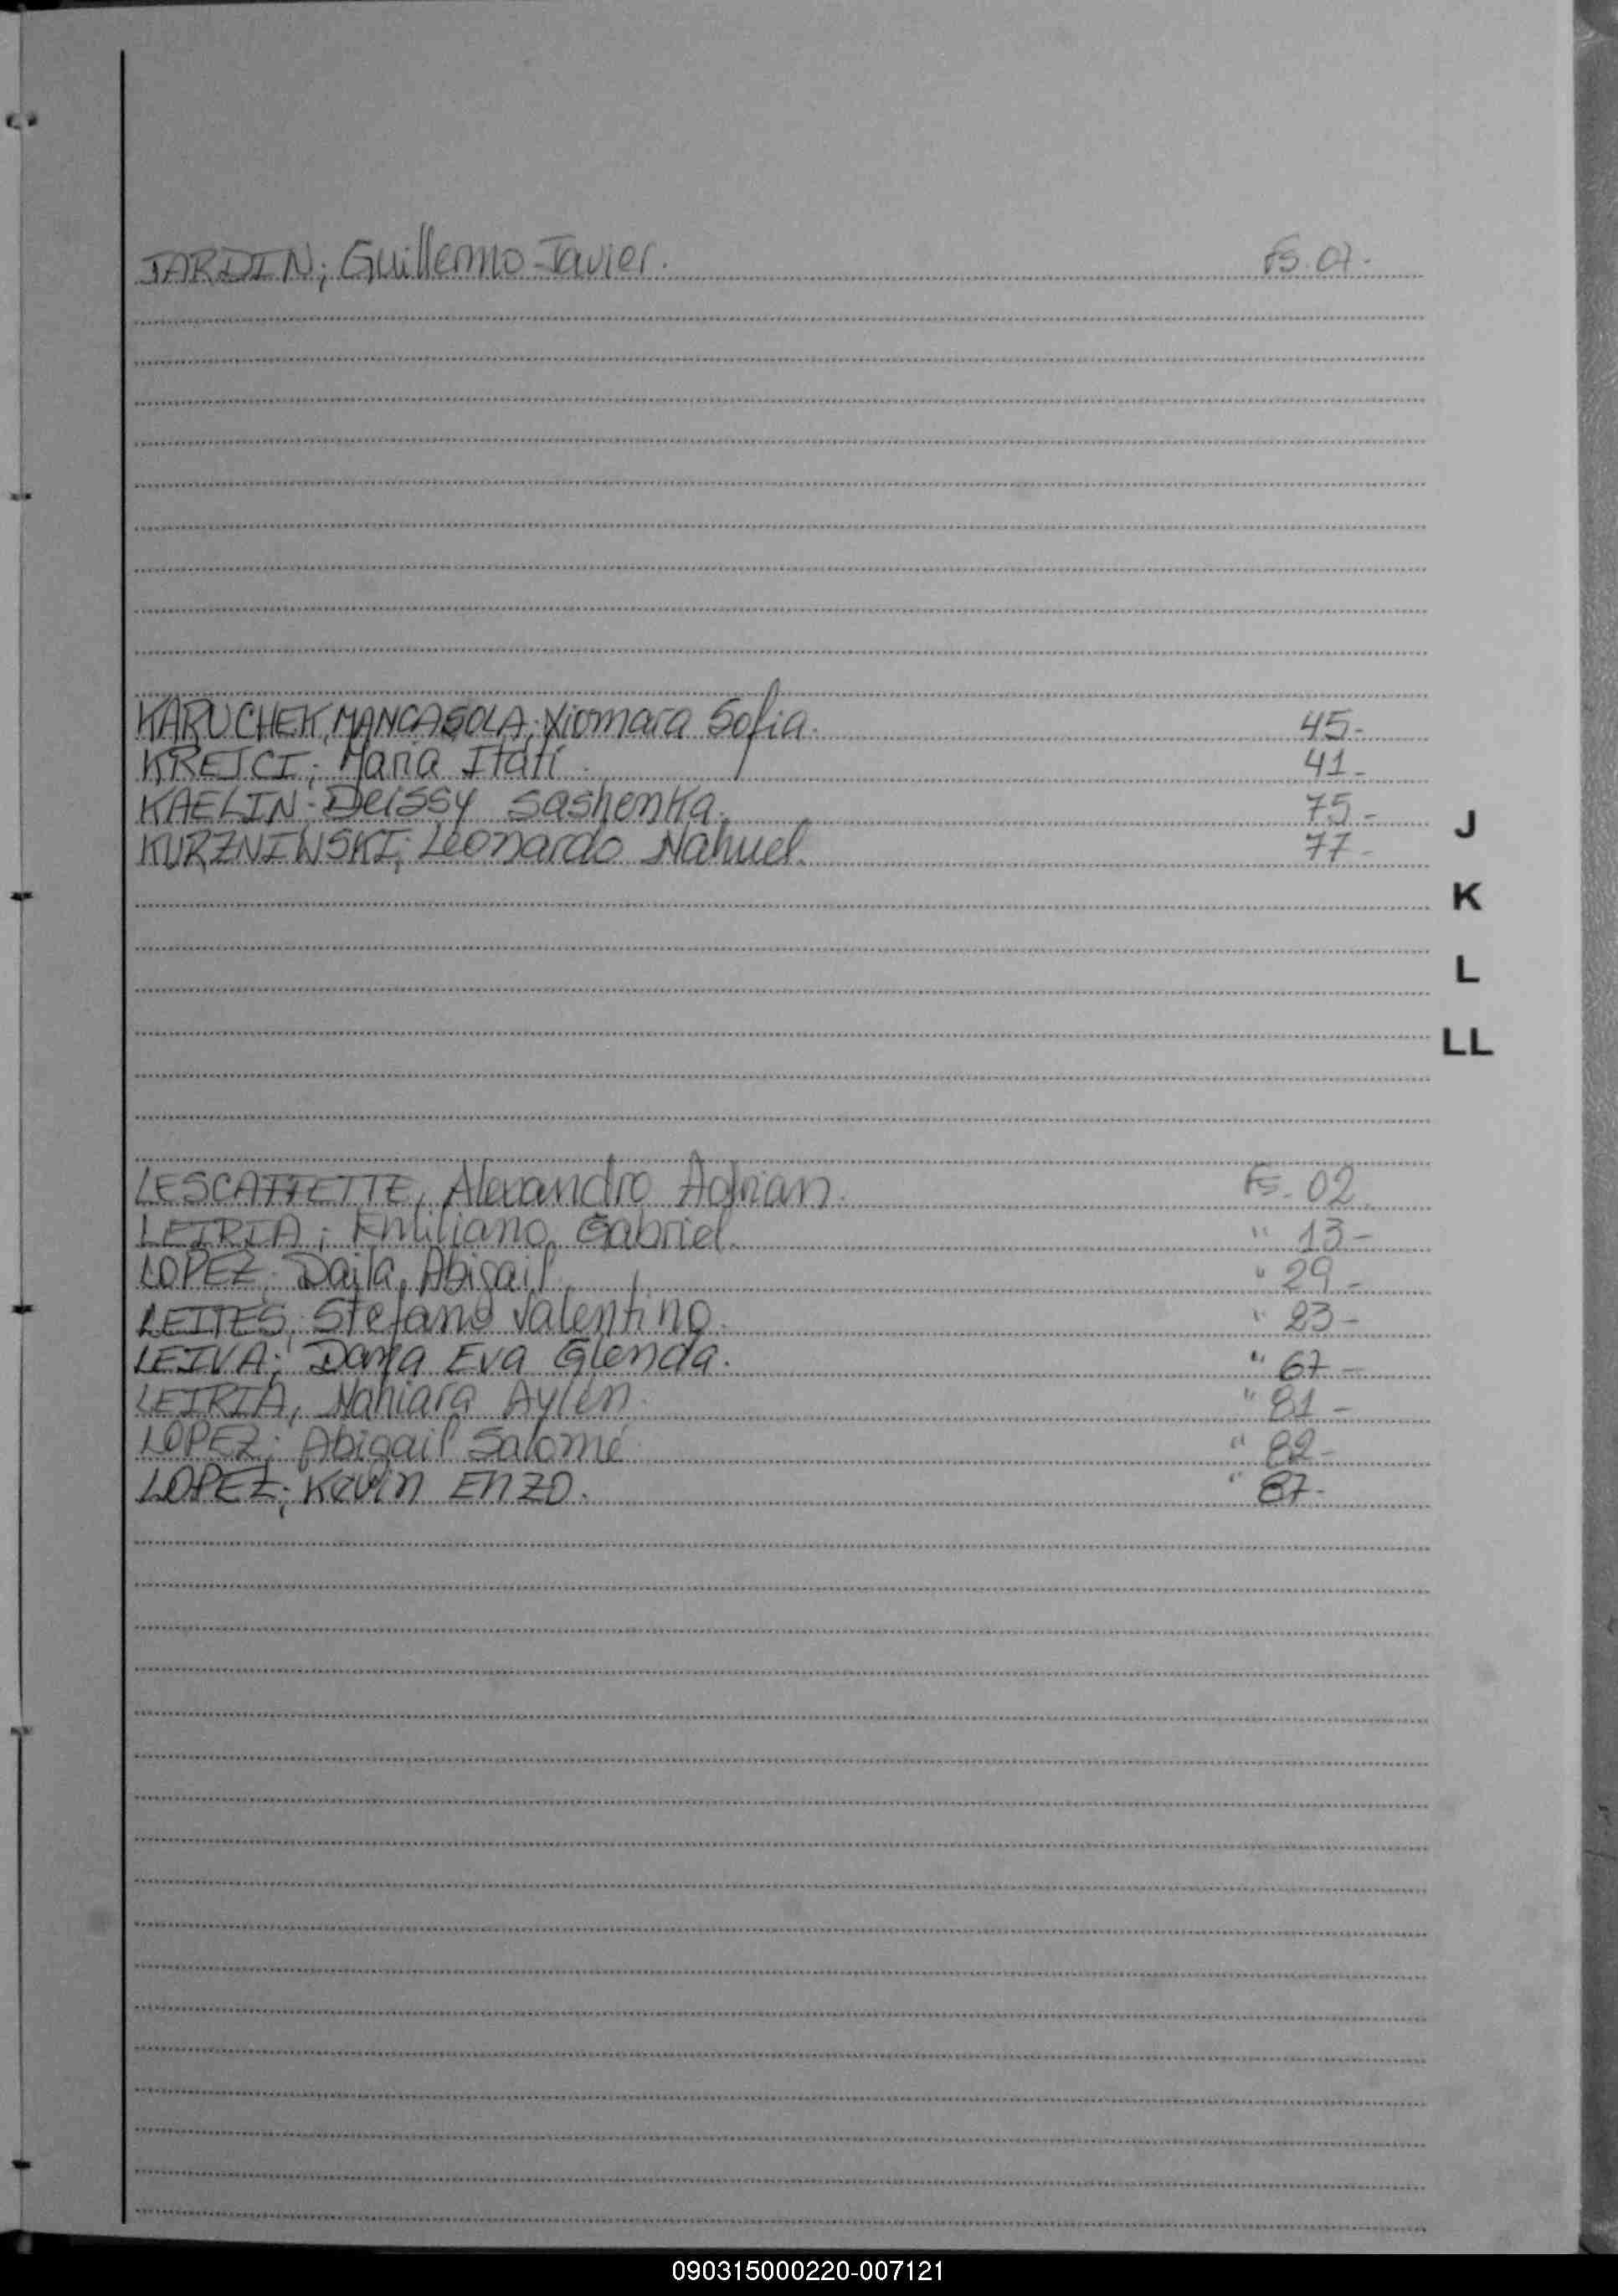 JARDIN; Guillermo Javier. Fs. 07.-
KARUCHEK, MANCASOLA; Xiomara Sofia. 45.-
KREJCI; Maria Itati. 41.-
KAELIN; Deissy Sashenka. 75.-
KURZNIWSKI; Leonardo Nahuel. 77.-
J
K
L
LL
LESCAFFETTE, Alexandro Adrian. Fs. 02.
LEIRIA; Emiliano, Gabriel. " 13-
LOPEZ; Daila, Abigail. " 29-
LEITES; Stefano Valentino. " 23-
LEIVA; Danya Eva Glenda. " 67-
LEIRIA, Nahiara Aylen. " 81-
LOPEZ; Abigail Salomé " 82-
LOPEZ; Kevin Enzo. " 87-
090315000220-007121